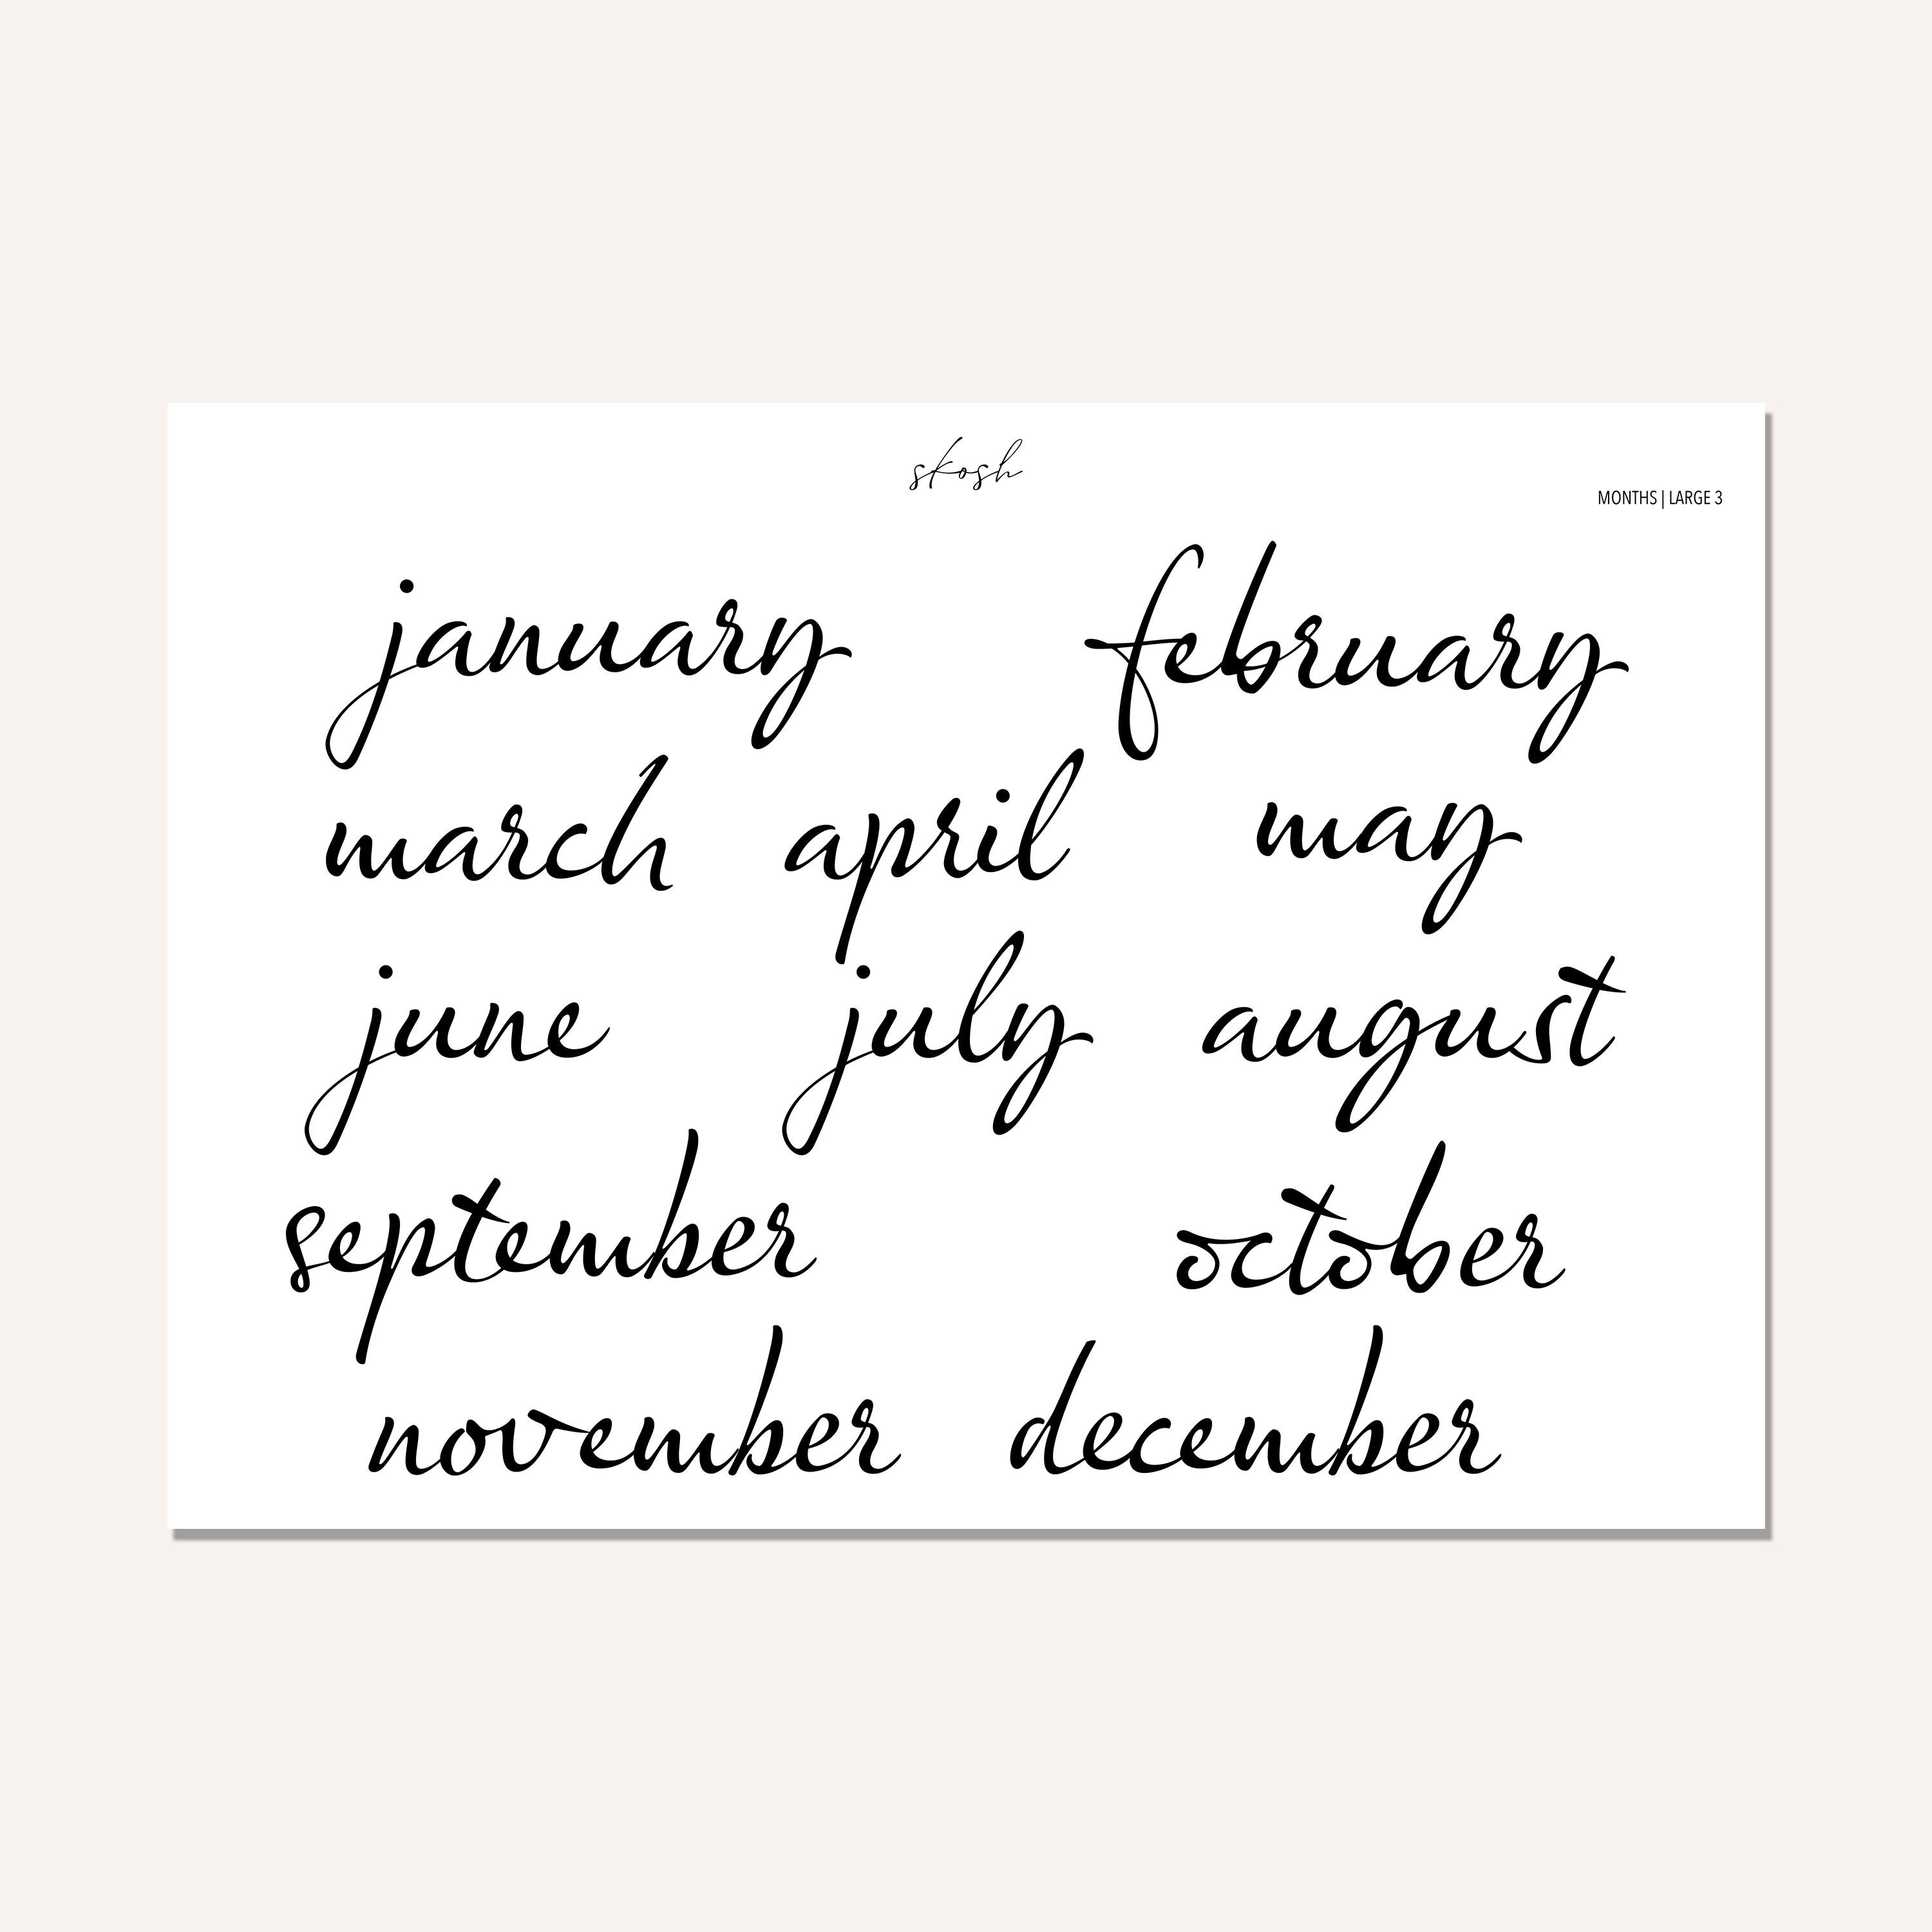 skosh
MONTHS | LARGE 3
january february
march april may
june july august
september october
november december